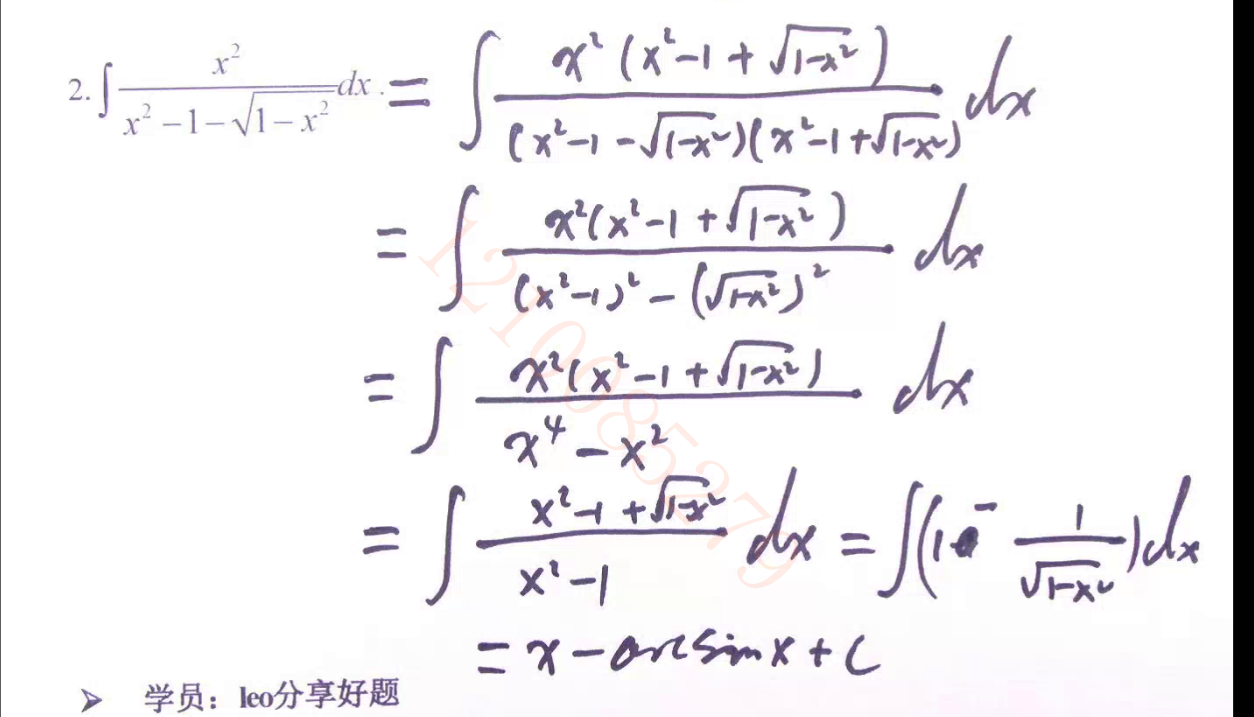 2. ∫ x²/(x²−1−√(1−x²)) dx. = ∫ x²(x²−1+√(1−x²))/((x²−1−√(1−x²))(x²−1+√(1−x²))) dx
= ∫ x²(x²−1+√(1−x²))/((x²−1)²−(√(1−x²))²) dx
= ∫ x²(x²−1+√(1−x²))/(x⁴−x²) dx
= ∫ (x²−1+√(1−x²))/(x²−1) dx = ∫(1 − 1/√(1−x²))dx
= x − arcsinx + C
➢ 学员：leo分享好题
1210085279